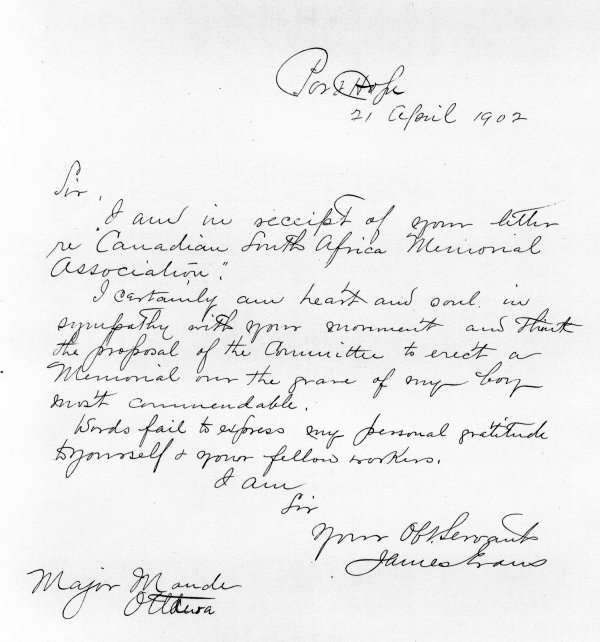 Port Hope
21 April 1902
Sir,
I am in receipt of your letter
re "Canadian South Africa Memorial
Association".
I certainly am heart and soul in
sympathy with your movement and think
the proposal of the Committee to erect a
Memorial over the grave of my boy
most commendable.
Words fail to express my personal gratitude
to yourself & your fellow workers.
I am
Sir
Your Obt. Servant
James Evans
Major Maude
Ottawa